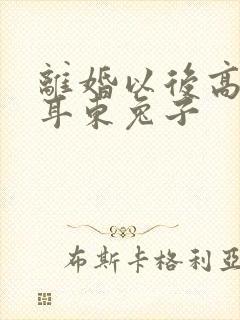 離婚以後高
耳東兔子
布斯卡格利亞